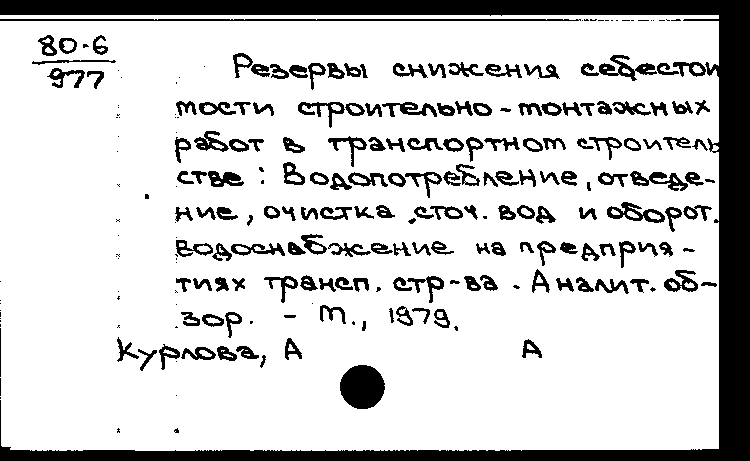 80-6
977
Резервы снижения себестои
мости строительно-монтажных
работ в транспортном строитель
стве: Водопотребление, отведе-
ние, очистка сточ. вод и оборот.
водоснабжение на предприя-
тиях трансп. стр-ва. Аналит. об-
зор. - М., 1979.
Курлова, А А